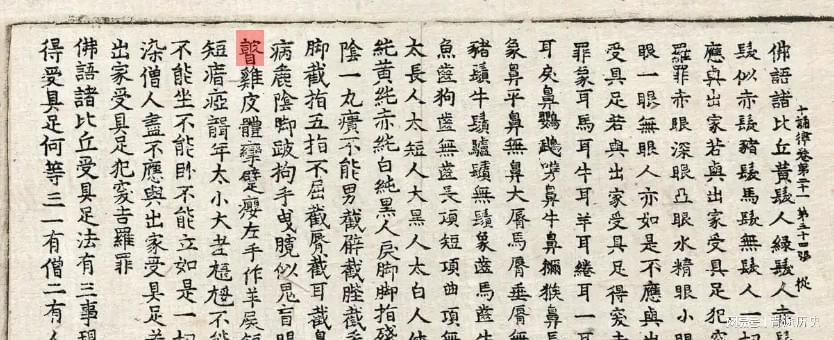 佛語諸比丘黃髮人綠髮人赤
十誦律卷第二十一 第三十四張 從
髮似赤髮豬髮馬髮無髮人一切
應與出家若與出家受具足犯突
羅罪赤眼深眼凸眼水精眼小眼
眼一眼無眼人亦如是不應與出
受具足若與出家受具足得突吉
罪象耳馬耳牛耳羊耳綣耳一耳
耳戾鼻鸚鵡嘴鼻牛鼻獼猴鼻長
象鼻平鼻無鼻大脣馬脣垂脣無
豬鬚牛鬚驢鬚無鬚象齒馬齒牛
魚齒狗齒無齒長項短項曲項無
太長人太短人太黑人太白人純
純黃純赤純白純黑人戾脚脚指殘
陰一丸㿗不能男截臂截髀截手
脚截指五指不屈截脣截耳截鼻
病麁陰脚跛拘手曳似鬼盲
瞽雞皮體攣躄癭左手作羊屎短
短瘖瘂聾年太小大老不能
不能坐不能臥不能立如是一切
染僧人盡不應與出家受具足若
出家受具足犯突吉羅罪
佛語諸比丘受具足法有三事現
得受具足何等三一有僧二有人